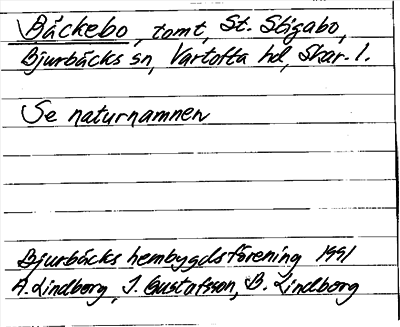 Bäckebo, tomt, St. Stigabo,
Bjurbäcks sn, Vartofta hd, Skar. l.
Se naturnamnen
Bjurbäcks hembygdsförening 1991
A. Lindberg, J. Gustafsson, B. Lindborg